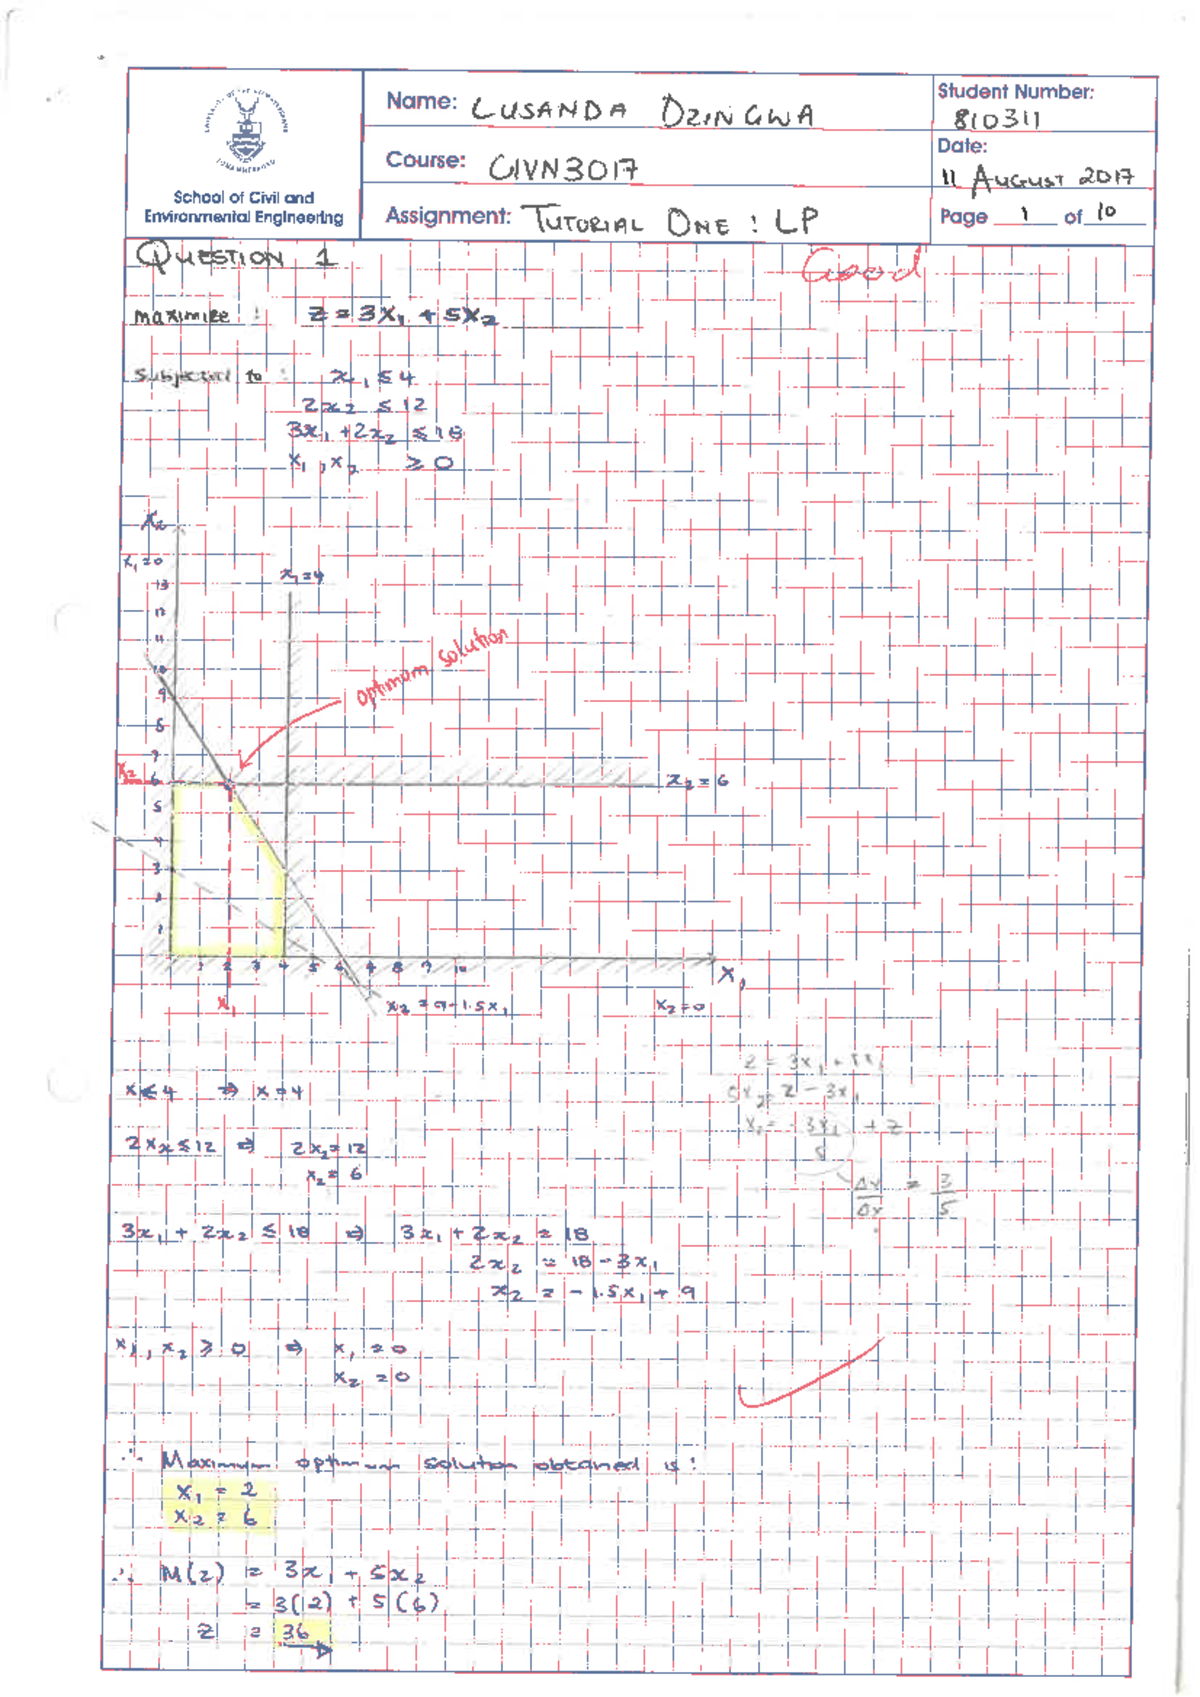 School of Civil and
Environmental Engineering
Name: LUSANDA DZINGWA
Course: CIVN3017
Assignment: TUTORIAL ONE : LP
Student Number:
810311
Date:
11 AUGUST 2017
Page 1 of 10
QUESTION 1
Good
maximize : Z = 3x₁ + 5x₂
Subjected to : x₁ ≤ 4
2x₂ ≤ 12
3x₁ + 2x₂ ≤ 18
x₁ , x₂ ≥ 0
x₂
x₁ = 0
x₁ = 4
13
12
11
10
9
8
7
6
5
4
3
2
1
optimum solution
x₂
x₂ = 6
1 2 3 4 5 6 7 8 9 10
x₁
x₁
x₂ = 9 - 1.5x₁
x₂ = 0
Z = 3x₁ +
5x₂ = Z - 3x₁
x₂ = - 3x₁ + Z
5
Δy = 3
Δx 5
x ≤ 4 ⇒ x = 4
2x₂ ≤ 12 ⇒ 2x₂ = 12
x₂ = 6
3x₁ + 2x₂ ≤ 18 ⇒ 3x₁ + 2x₂ = 18
2x₂ = 18 - 3x₁
x₂ = - 1.5x₁ + 9
x₁ , x₂ ≥ 0 ⇒ x₁ = 0
x₂ = 0
∴ Maximum optimum solution obtained is :
x₁ = 2
x₂ = 6
∴ M(z) = 3x₁ + 5x₂
= 3(2) + 5(6)
Z = 36